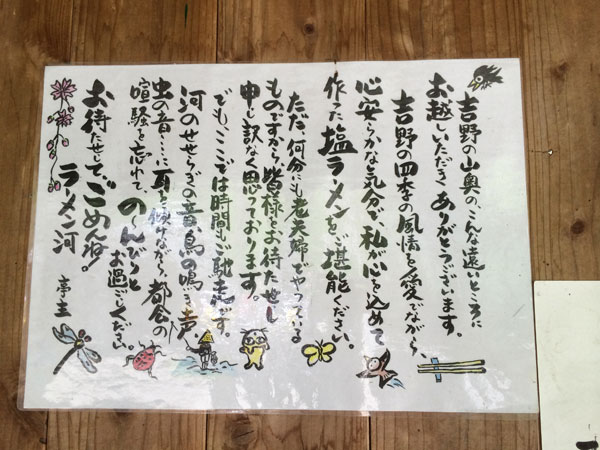 吉野の山奥の、こんな遠いところに
お越しいただきありがとうございます。
吉野の四季の風情を愛でながら、
心安らかな気分で、私が心を込めて
作った塩ラーメンをご堪能ください。
ただ、何分にも老夫婦でやっている
ものですから皆様をお待たせし
申し訳なく思っております。
でも、ここでは時間もご馳走です。
河のせせらぎの音、鳥の鳴き声
虫の音……に耳を傾けながら、都会の
喧騒を忘れて、の〜んびりとお過ごしください。
お待たせして、ごめんね!
ラーメン河 亭主